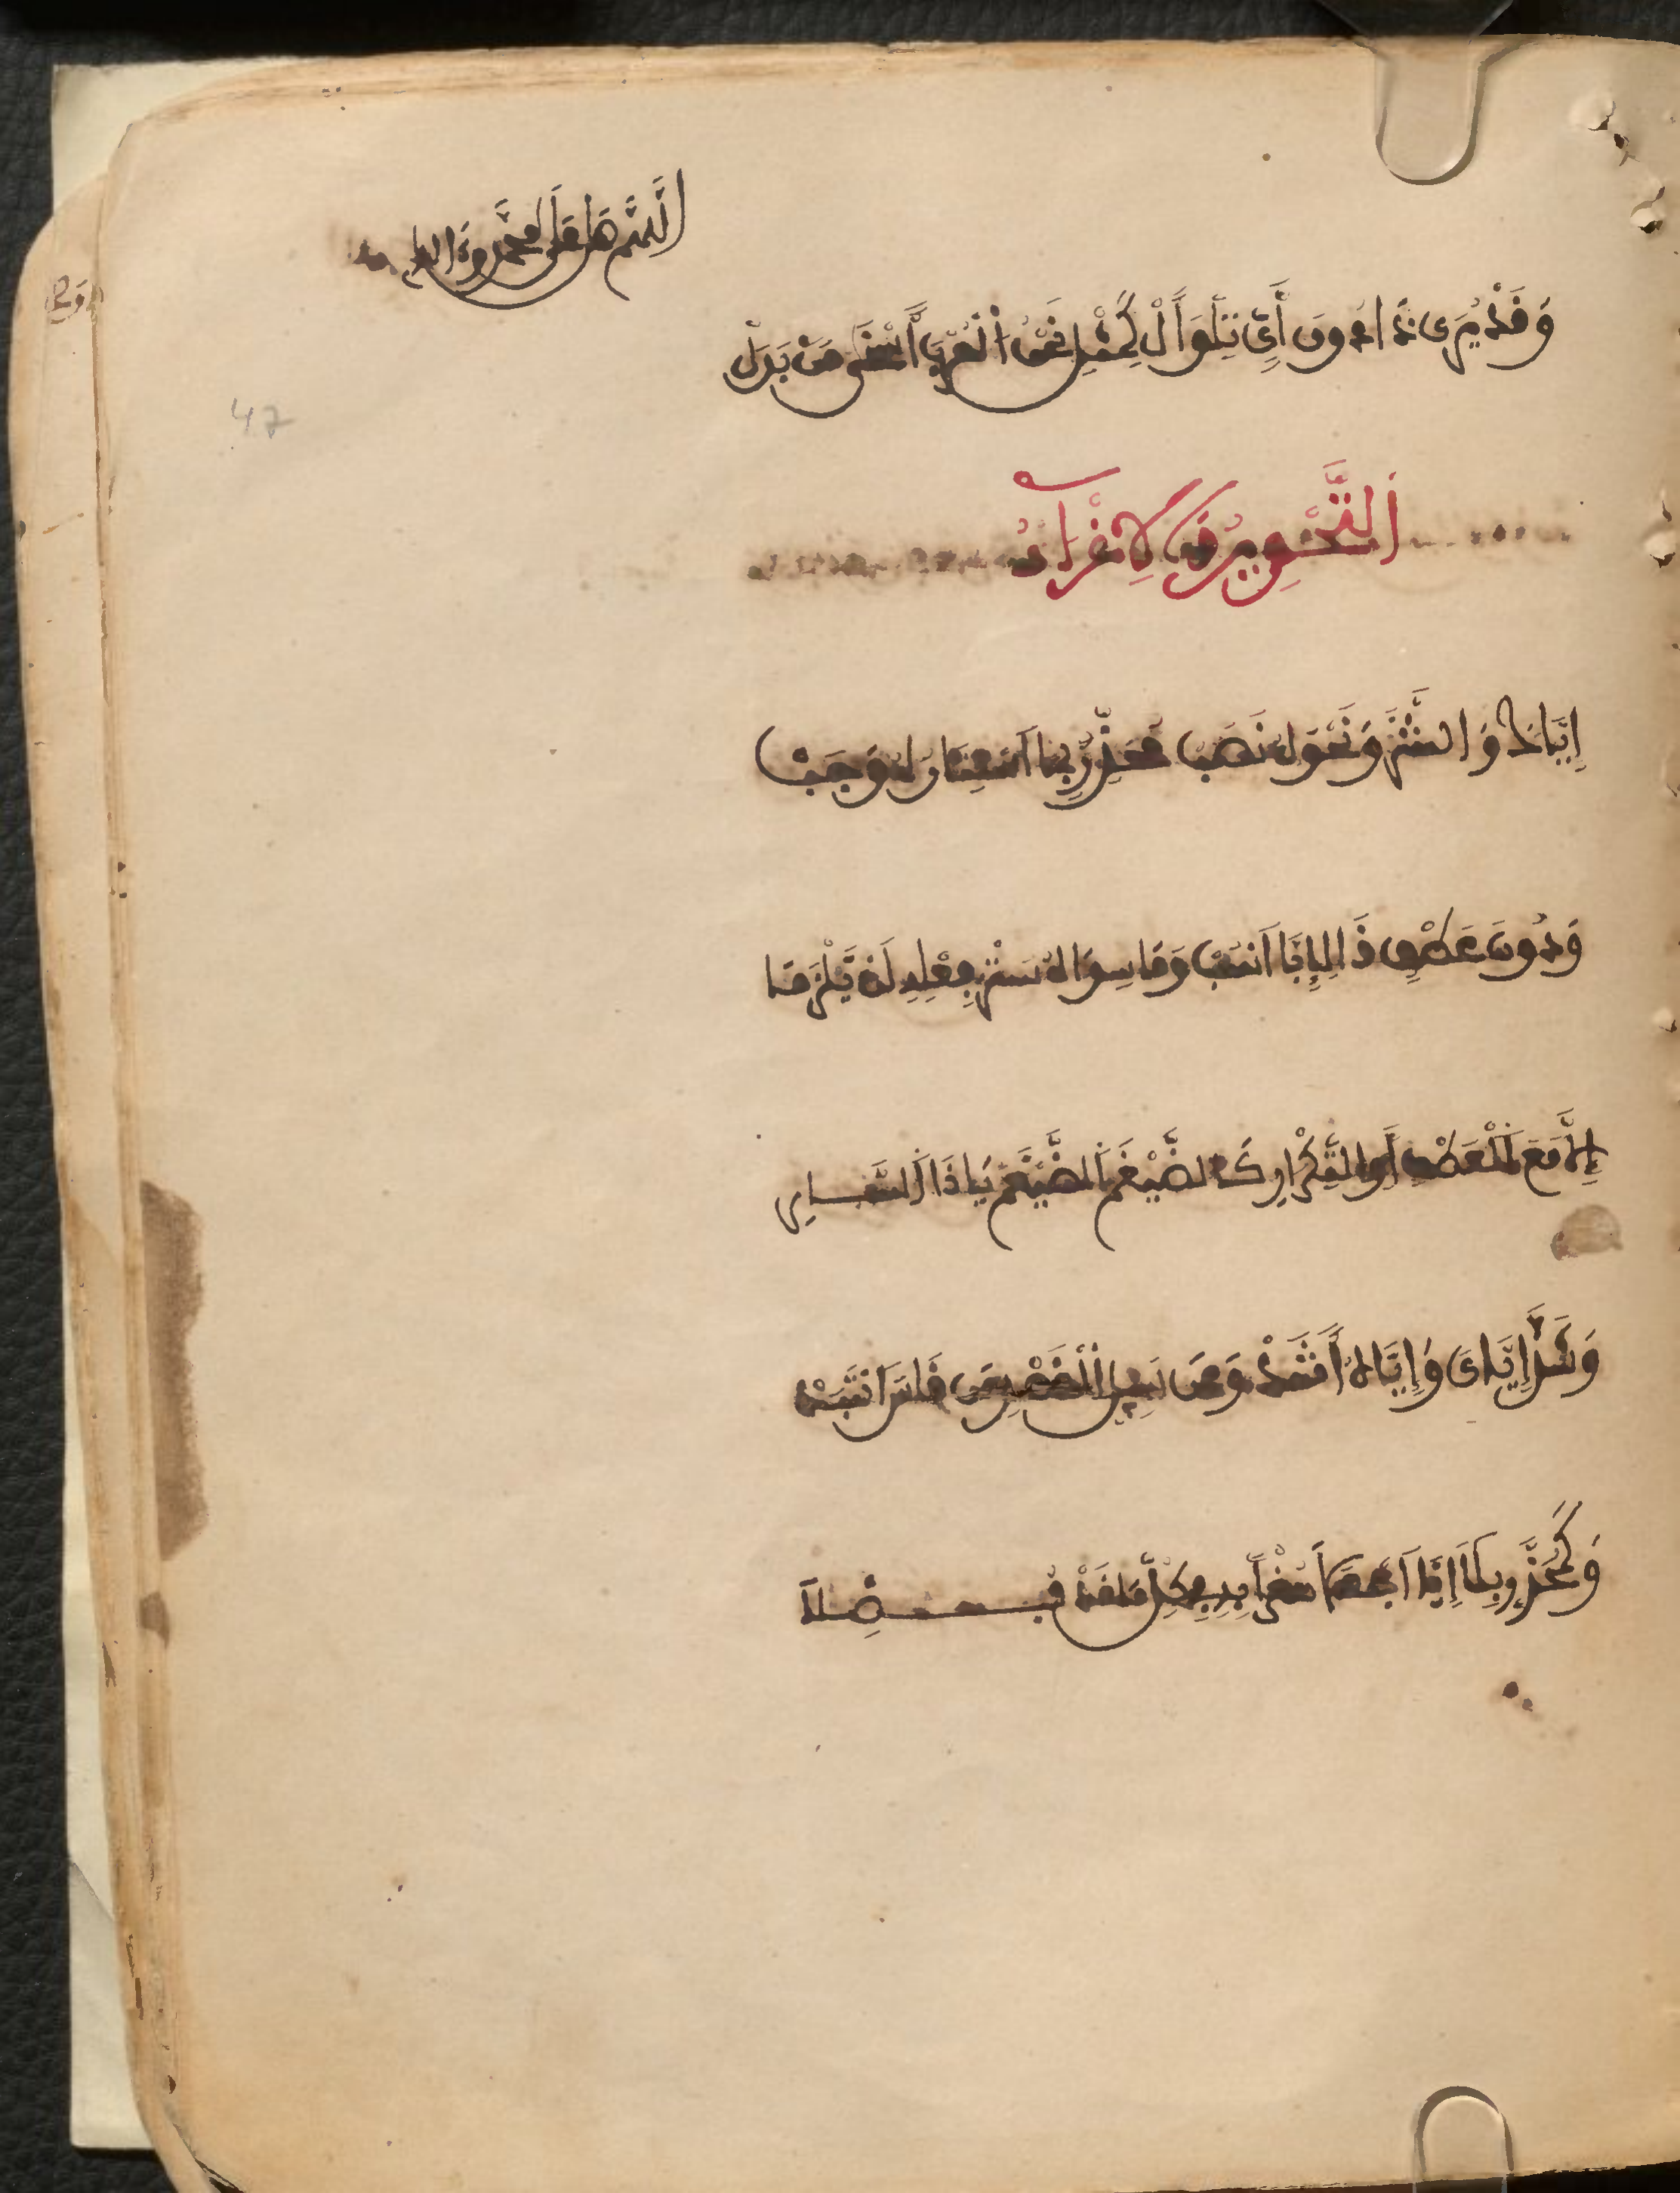 اللهم صل على محمد وءاله
وَقَدْ يُرَى ذَا دُونَ أَيٍّ تِلْوَ أَلْ كَمِثْلِ نَحْنُ الْعُرْبَ أَسْخَى مَنْ بَذَلْ
47
التَّحْذِيرُ وَالإِغْرَاءُ
إِيَّاكَ وَالشَّرَّ وَنَحْوَهُ نَصَبْ مُحَذِّرٌ بِمَا اسْتِتَارُهُ وَجَبْ
وَدُونَ عَطْفٍ ذَا لِإِيَّا انْسُبْ وَمَا سِوَاهُ سَتْرُ فِعْلِهِ لَنْ يَلْزَمَا
إِلَّا مَعَ الْعَطْفِ أَوِ التَّكْرَارِ كَالضَّيْغَمَ الضَّيْغَمَ يَا ذَا السَّارِى
وَشَذَّ إِيَّاىَ وَإِيَّاهُ أَشَذّْ وَعَنْ سَبِيلِ الْقَصْدِ مَنْ قَاسَ انْتَبَذْ
وَكَمُحَذَّرٍ بِلَا إِيَّا اجْعَلَا مُغْرًا بِهِ فِى كُلِّ مَا قَدْ فُصِّلَا